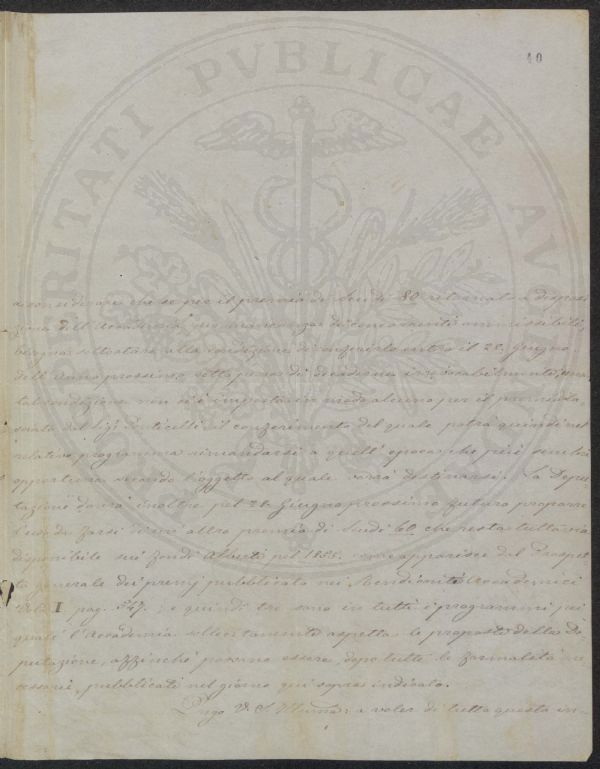 40
PROSPERITATI PVBLICAE AVGENDAE
a considerare che se per il premio di Scudi 80 ritornato a disposi
zione dell'Accademia per mancanza di concorrenti ammissibili,
bisogna sottostare alla condizione di conferirlo entro il 28 Giugno
dell'anno prossimo sotto pena di decadenza irrevocabilmente,
tal condizione non si è imposta in modo alcuno per il premio
dal Sig. Conticelli il conferimento del quale potrà quindi nel
relativo programma rimandarsi a quell'epoca che più sembri
opportuna secondo l'oggetto al quale verrà destinarsi. La Depu
tazione dovrà inoltre pel 28 Giugno prossimo futuro proporre
l'uso da farsi di un altro premio di Scudi 60 che resta tuttavia
disponibile sui fondi Alberti pel 1855. come apparisce dal Prospet
to generale dei premj pubblicato nei Rendiconti Accademici
I pag. 547. e quindi tre sono in tutti i programmi pei
quali l'Accademia sollecitamente aspetta le proposte della De
putazione, affinchè possano essere, dopo tutte le formalità ne
cessarie, pubblicati nel giorno qui sopra indicato.
Prego V. S. Illma: a voler di tutto questo in-